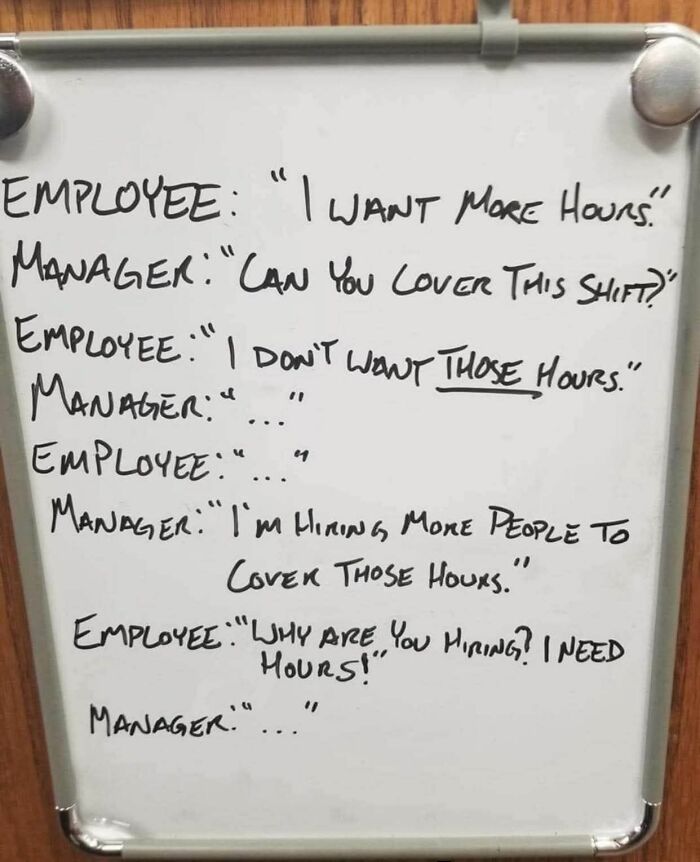 EMPLOYEE: "I WANT MORE HOURS."
MANAGER: "CAN YOU COVER THIS SHIFT?"
EMPLOYEE: "I DON'T WANT THOSE HOURS."
MANAGER: "..."
EMPLOYEE: "..."
MANAGER: "I'M HIRING MORE PEOPLE TO
COVER THOSE HOURS."
EMPLOYEE: "WHY ARE YOU HIRING? I NEED
HOURS!"
MANAGER: "..."